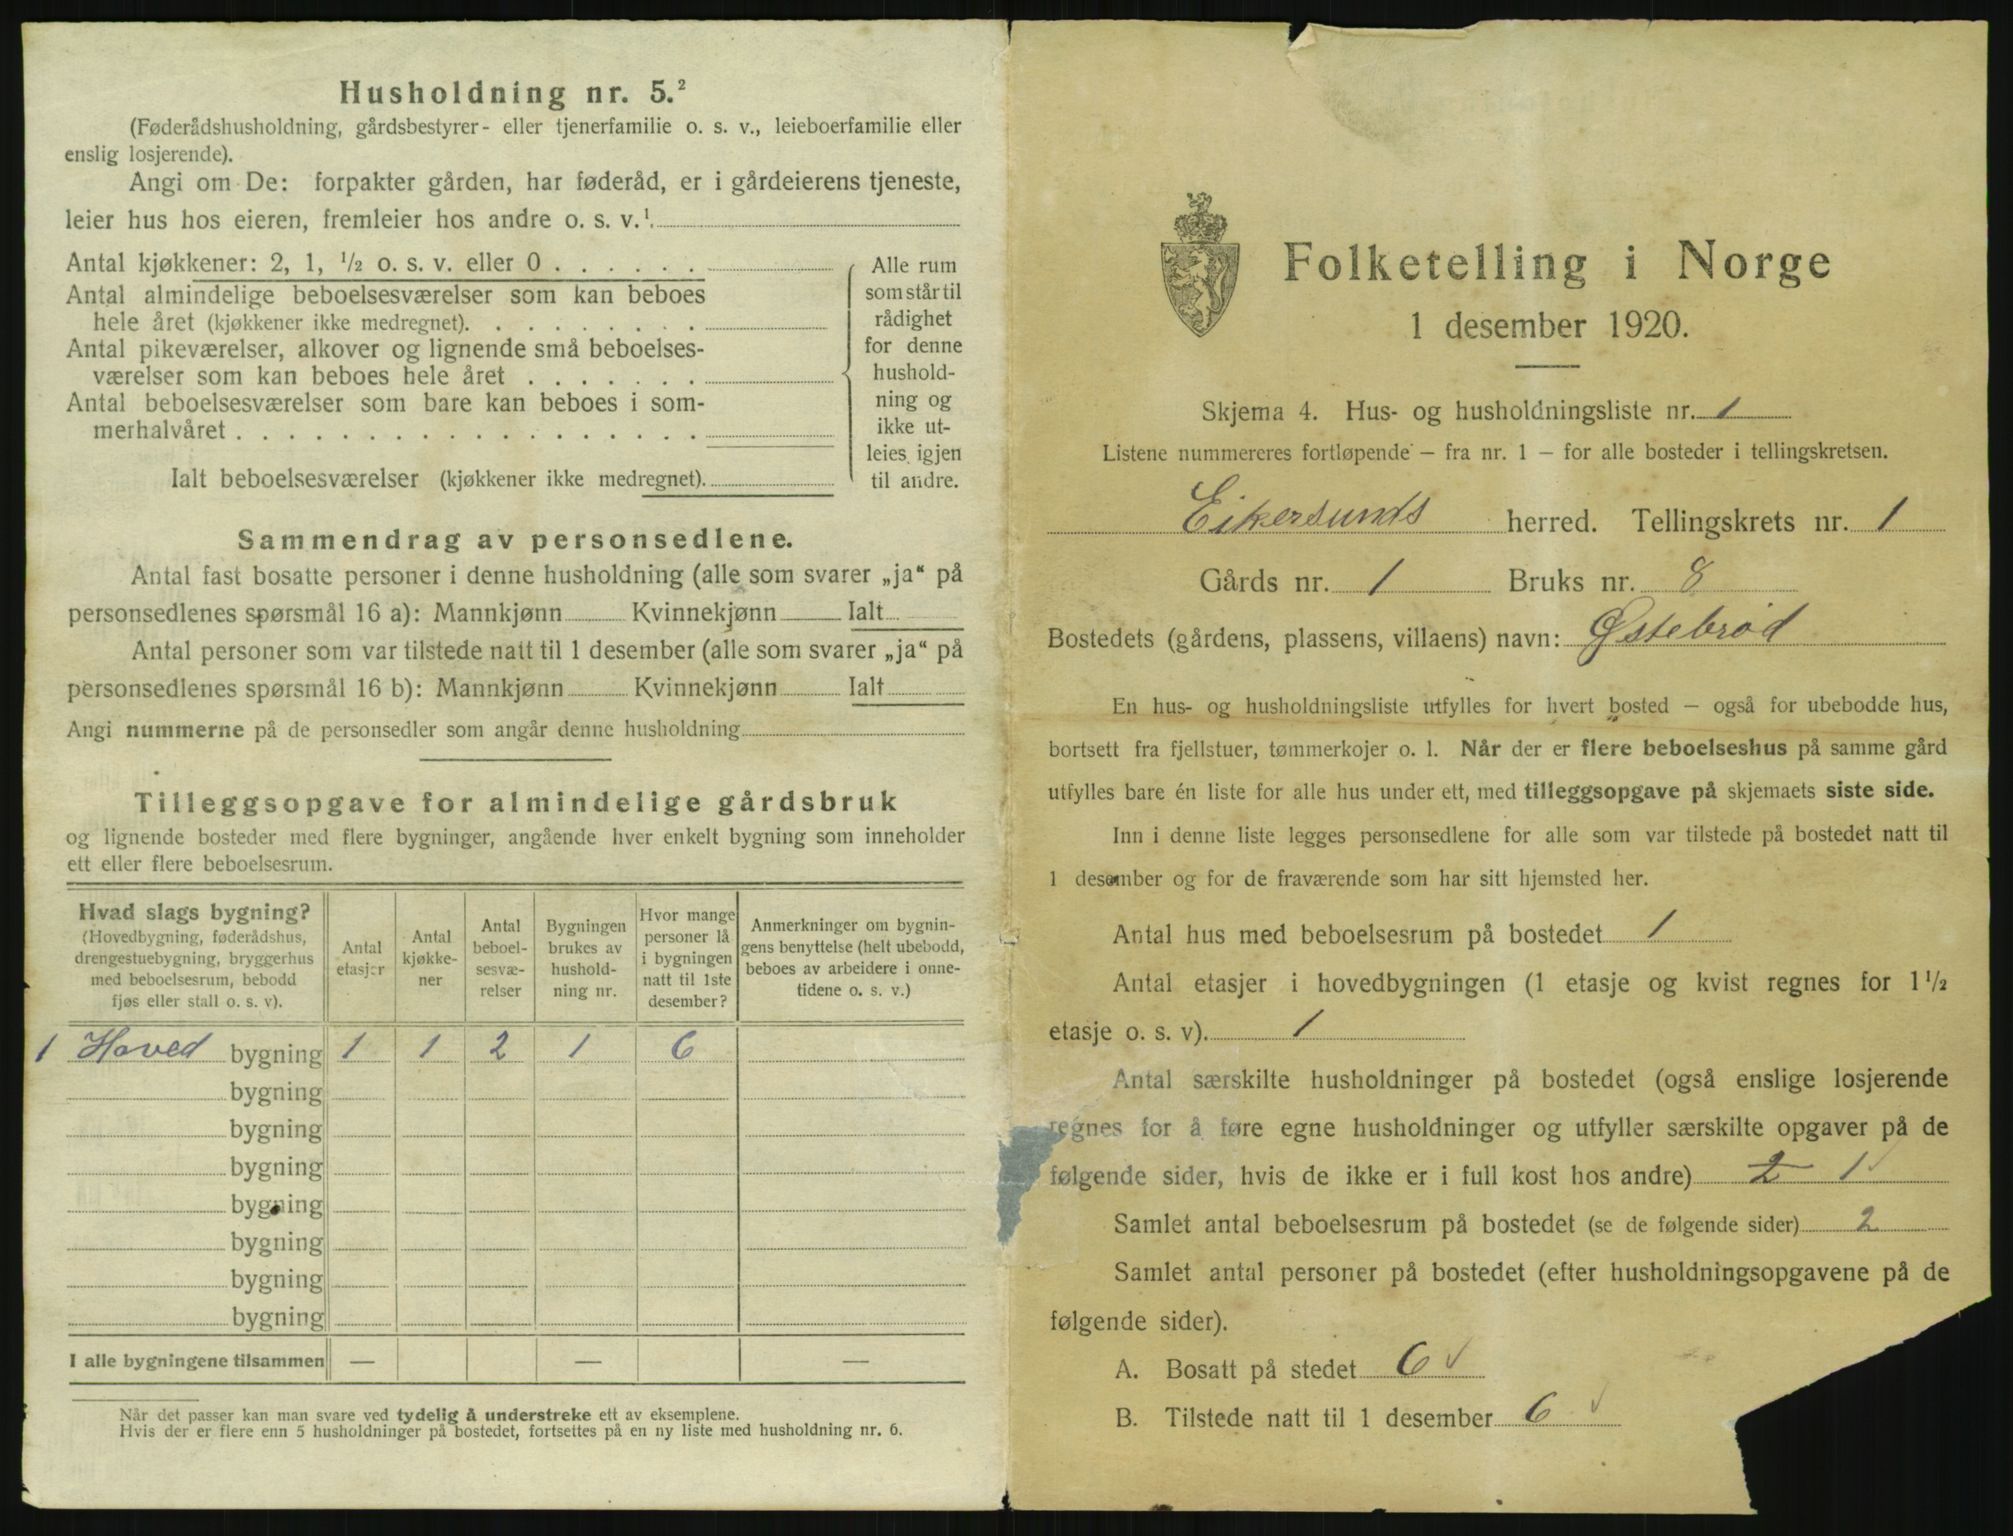 Husholdning nr. 5.²
(Føderådshusholdning, gårdsbestyrer- eller tjenerfamilie o. s. v., leieboerfamilie eller
enslig losjerende).
Angi om De: forpakter gården, har føderåd, er i gårdeierens tjeneste,
leier hus hos eieren, fremleier hos andre o. s. v.¹
Antal kjøkkener: 2, 1, ½ o. s. v. eller 0 . . . . . .
Antal almindelige beboelsesværelser som kan beboes
hele året (kjøkkener ikke medregnet). . . . . . . . .
Antal pikeværelser, alkover og lignende små beboelses-
værelser som kan beboes hele året . . . . . . .
Antal beboelsesværelser som bare kan beboes i som-
merhalvåret . . . . . . . . . . . . . . . . . .
Ialt beboelsesværelser (kjøkkener ikke medregnet).
Alle rum
som står til
rådighet
for denne
hushold-
ning og
ikke ut-
leies igjen
til andre.
Sammendrag av personsedlene.
Antal fast bosatte personer i denne husholdning (alle som svarer „ja“ på
personsedlenes spørsmål 16 a): Mannkjønn Kvinnekjønn Ialt
Antal personer som var tilstede natt til 1 desember (alle som svarer „ja“ på
personsedlenes spørsmål 16 b): Mannkjønn Kvinnekjønn Ialt
Angi nummerne på de personsedler som angår denne husholdning
Tilleggsopgave for almindelige gårdsbruk
og lignende bosteder med flere bygninger, angående hver enkelt bygning som inneholder
ett eller flere beboelsesrum.
Hvad slags bygning?
(Hovedbygning, føderådshus,
drengestuebygning, bryggerhus
med beboelsesrum, bebodd
fjøs eller stall o. s. v).
Antal
etasjer
Antal
kjøkke-
ner
Antal
beboel-
sesvæ-
relser
Bygningen
brukes av
hushold-
ning nr.
Hvor mange
personer lå
i bygningen
natt til 1ste
desember?
Anmerkninger om bygnin-
gens benyttelse (helt ubebodd,
beboes av arbeidere i onne-
tidene o. s. v.)
1 Hoved bygning 1 1 2 1 6
bygning
bygning
bygning
bygning
bygning
bygning
bygning
I alle bygningene tilsammen — — —
Når det passer kan man svare ved tydelig å understreke ett av eksemplene.
Hvis der er flere enn 5 husholdninger på bostedet, fortsettes på en ny liste med husholdning nr. 6.
Folketelling i Norge
1 desember 1920.
Skjema 4. Hus- og husholdningsliste nr. 1
Listene nummereres fortløpende — fra nr. 1 — for alle bosteder i tellingskretsen.
Eikersunds herred. Tellingskrets nr. 1
Gårds nr. 1 Bruks nr. 8
Bostedets (gårdens, plassens, villaens) navn: Østebrød
En hus- og husholdningsliste utfylles for hvert bosted — også for ubebodde hus,
bortsett fra fjellstuer, tømmerkojer o. l. Når der er flere beboelseshus på samme gård
utfylles bare én liste for alle hus under ett, med tilleggsopgave på skjemaets siste side.
Inn i denne liste legges personsedlene for alle som var tilstede på bostedet natt til
1 desember og for de fraværende som har sitt hjemsted her.
Antal hus med beboelsesrum på bostedet 1
Antal etasjer i hovedbygningen (1 etasje og kvist regnes for 1½
etasje o. s. v). 1
Antal særskilte husholdninger på bostedet (også enslige losjerende
regnes for å føre egne husholdninger og utfyller særskilte opgaver på de
følgende sider, hvis de ikke er i full kost hos andre) 2 1 ✓
Samlet antal beboelsesrum på bostedet (se de følgende sider) 2
Samlet antal personer på bostedet (efter husholdningsopgavene på de
følgende sider).
A. Bosatt på stedet 6 ✓
B. Tilstede natt til 1 desember 6 ✓